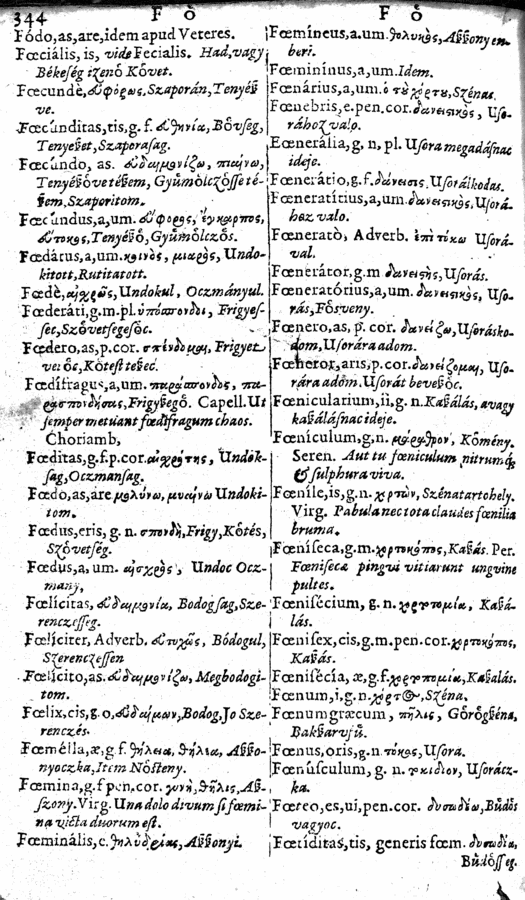 344 F O
F O
Fódo, as, are, idem apud Veteres.
Fœciális, is, vide Fecialis. Had, vagy
Békeſég izenö Követ.
Fœcundè, εὐφόρως, Szaporán, Tenyéß
ve.
Fœcúnditas, tis, g. f. εὐθηνία, Bövſeg,
Tenyeßet, Szaporaſag.
Fœcúndo, as. εὐδαιμονίζω, πιαίνω,
Tenyéßövetéßem, Gyümölczöſſeté-
ßem, Szaporitom.
Fœcúndus, a, um. εὔφορος, ἔγκαρπος,
εὔτοκος, Tenyéßö, Gyümölczös.
Fœdátus, a, um. κοινὸς, μιαρὸς, Undo-
kitott, Rutitatott.
Fœdè, αἰσχρῶς, Undokul, Oczmányul.
Fœderáti, g. m. pl. ὑπόσπονδοι, Frigyeſ-
ſet, Szövetſegeſöc.
Fœdero, as, p. cor. σπένδομαι, Frigyet
Fœdífragus, a, um. παράσπονδος, πα-
ρασπονδήσας, Frigyßegö. Capell. Ut
ſemper metuant fœdifragum chaos.
Choriamb,
Fœditas, g. f. p. cor. αἰσχρότης, Undok-
ſag, Oczmanſag.
Fœdo, as, are μολύνω, μιαίνω Undoki-
tom.
Fœdus, eris, g. n. σπονδὴ, Frigy, Kötés,
Szövetſég.
Fœdus, a, um. αἰσχρὸς, Undoc Ocz-
many,
Fœlícitas, εὐδαιμονία, Bodogſag, Sze-
renczeſſeg.
Fœlíciter, Adverb. εὐτυχῶς, Bódogul,
Szerenczeſſen
Fœlícito, as. εὐδαιμονίζω, Megbodogi-
tom.
Fœlix, cis, g. o, εὐδαίμων, Bodog, Jo Sze-
renczés.
Fœmélla, æ, g f. θήλεια, Aßßo-
nyoczka, Item Nösteny.
Fœmina, g. f pen. cor. γυνὴ, θῆλις, Aß-
ſzony. Virg. Una dolo divum ſi fœmi-
na victa duorum eſt.
Fœminális, c. Aßßonyi.
Fœmíneus, a. um. θηλυκὸς, Aßßony em-
beri.
Fœminínus, a, um. Idem.
Fœnárius, a, um. ὁ τοῦ χόρτου, Szénas.
Fœnebris, e. pen. cor. δανειστικὸς, Uſo-
rához valo.
Fœnerália, g. n, pl. Uſora megadáſnac
ideje.
Fœnerátio, g. f. δάνεισις. Uſorálkodas.
Fœneratítius, a, um. δανειστικὸς, Uſorá-
hoz valo.
Fœnerató, Adverb. ἐπὶ τόκω Uſorá-
val.
Fœnerátor, g. m δανειστὴς, Uſorás.
Fœneratórius, a, um. δανειστικὸς, Uſo-
rás, Föſveny.
Fœnero, as, p. cor. δανείζω, Uſorásko-
dom, Uſorára adom.
Fœneror, aris, p. cor. δανείζομαι, Uſo-
rára adom. Uſorát beveßöc.
Fœniculárium, ii, g. n. Kaßálás, avagy
kaßálásnac ideje.
Fœniculum, g, n. μάραθρον, Kömény.
Seren. Aut tu fœniculum nitrumq́;
& ſulphura viva.
Fœníle, is, g. n. χορτὼν, Szénatartohely.
Virg. Pabula nec tota claudes fœnilia
bruma.
Fœníſeca, g. m. χορτοκόπος, Kaßás. Per.
Fœniſecæ pingui vitiarunt unguine
pultes.
Fœniſécium, g. n. χορτοτομία, Kaßá-
lás.
Fœniſex, cis, g. m. pen. cor. χορτοκόπος,
Kaßás.
Fœniſécía, æ, g. f. χορτοτομία, Kaßalás.
Fœnum, i, g. n. χόρτος, Széna.
Fœnumgræcum, τῆλις, Görögßéna,
Bakßarvjú.
Fœnus, oris, g. n. τόκος, Uſora.
Fœnúſculum, g. n. τοκίδιον, Uſorácz-
ka.
Fœteo, es, ui, pen. cor. δυσωδέω, Büdös
vagyoc.
Fœtíditas, tis, generis fœm. δυσωδία,
Büdöſſeg.